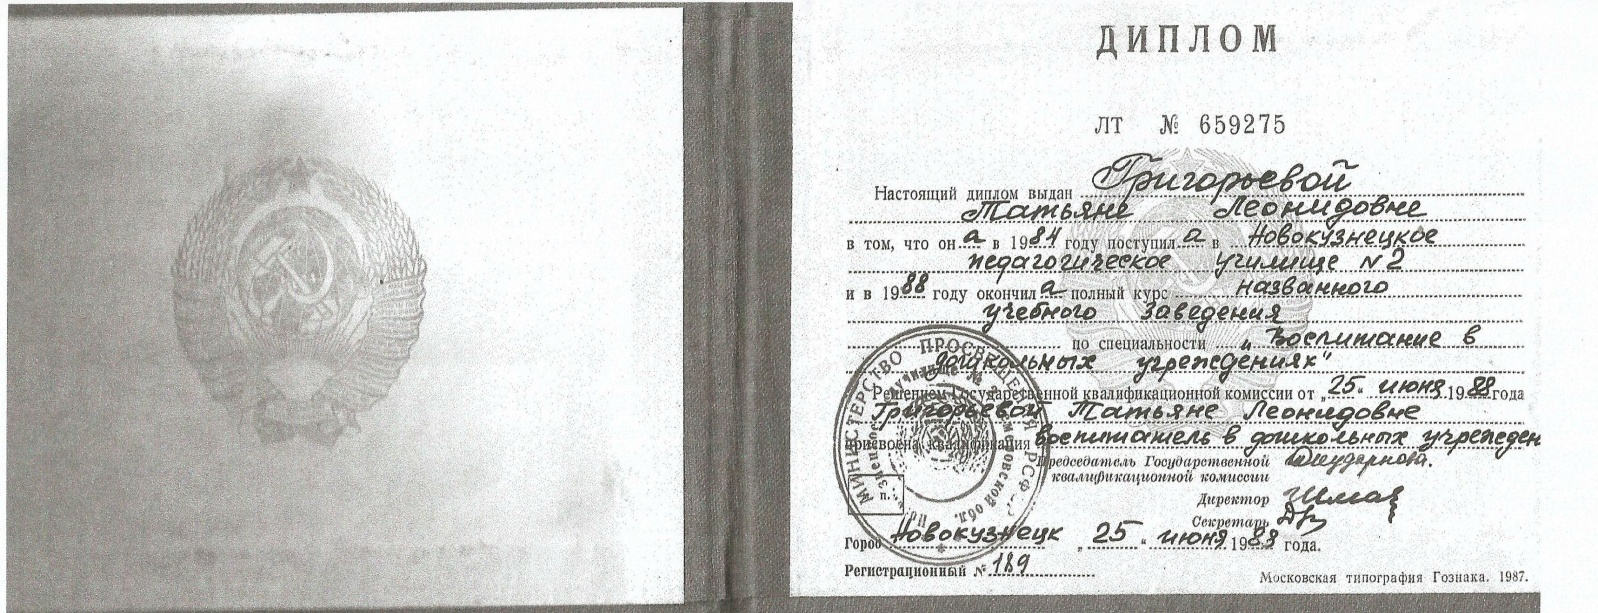 ДИПЛОМ
ЛТ № 659275
Настоящий диплом выдан Григорьевой
Татьяне Леонидовне
в том, что он а в 1984 году поступил а в Новокузнецкое
педагогическое училище N2
и в 1988 году окончил а полный курс названного
учебного заведения
по специальности „Воспитание в
дошкольных учреждениях"
Решением Государственной квалификационной комиссии от „25" июня 1988 года
Григорьевой Татьяне Леонидовне
присвоена квалификация воспитатель в дошкольных учрежден
Председатель Государственной
квалификационной комиссии
Директор
Секретарь
Город Новокузнецк „25" июня 1988 года.
Регистрационный № 189
Московская типография Гознака. 1987.
МИНИСТЕРСТВО ПРОСВЕЩЕНИЯ РСФСР
училище № 2 Кемеровской обл.